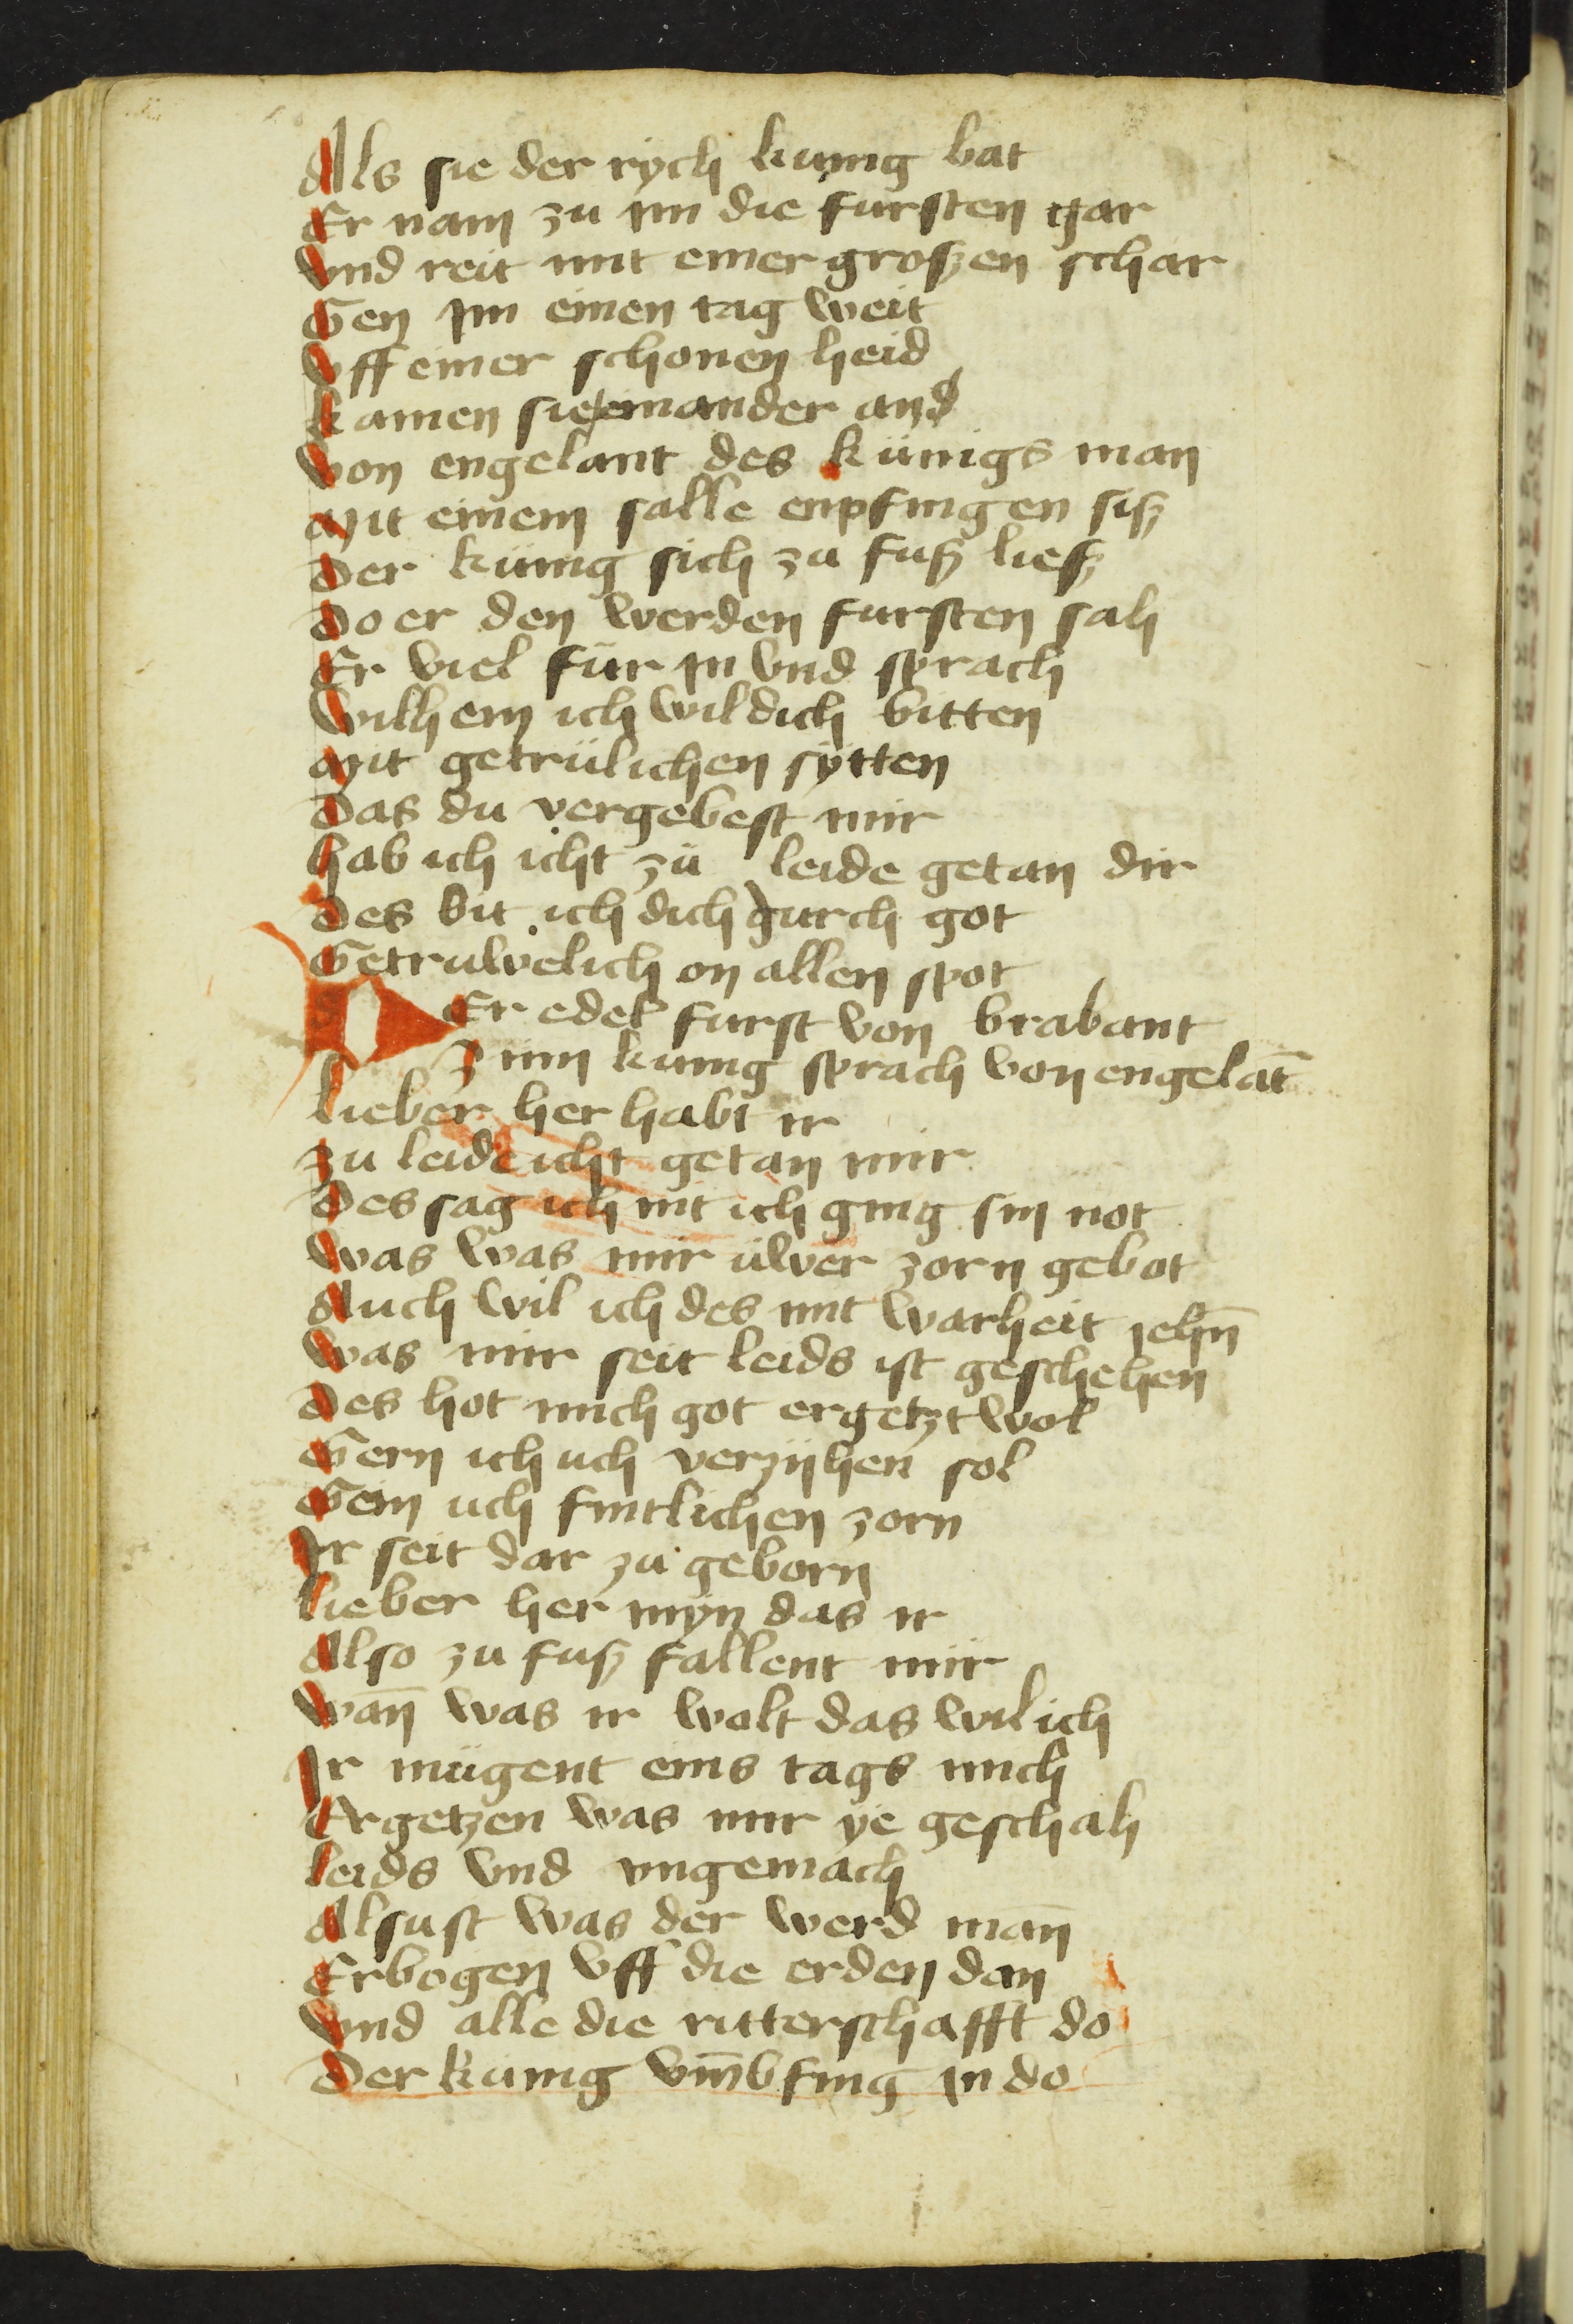 Als sie der rych kunig bat
Er nam zu im die fursten gar
Vnd reit mit einer großen schar
Gen Im einen tag weit
Vff einer schonen heid
kamen sie einander and
Von engelant des künigs man
Mit einem salle enpfingen siß
Der künig sich zu fuß ließ
Do er den werden fursten sah
Er viel für in vnd sprach
Wilhem ich wil dich bitten
Mit getrülichen sytten
Das du vergebest mir
hab ich icht zü leide getan dir
Des bit ich dich durch got
Getruwelich on allen spot
DEr edel furst von brabant
Zum kunig sprach von engelāt
lieber her habt ir
zu leide icht getan mir
Des sag ich nit ich ging sin not
Was was mir üwer zorn gebot
Auch wil ich des mit warheit iehn̄
Was mir seit leids ist geschehen
Des hot mich got ergetzt wol
Gern ich uch verzijhen sol
Gein uch fintlichen zorn
Ir seit dar zu geborn
lieber her myn das ir
Also zu fuß fallent mir
Wan̄ was ir wolt das wil ich
Ir mügent eins tags mich
Ergetzen was mir ye geschah
leids vnd vngemach
Alsust was der werd man̄
Erbogen vff die erden dan
Vnd alle die ritterschafft do
Der kunig vm̄bfing in do